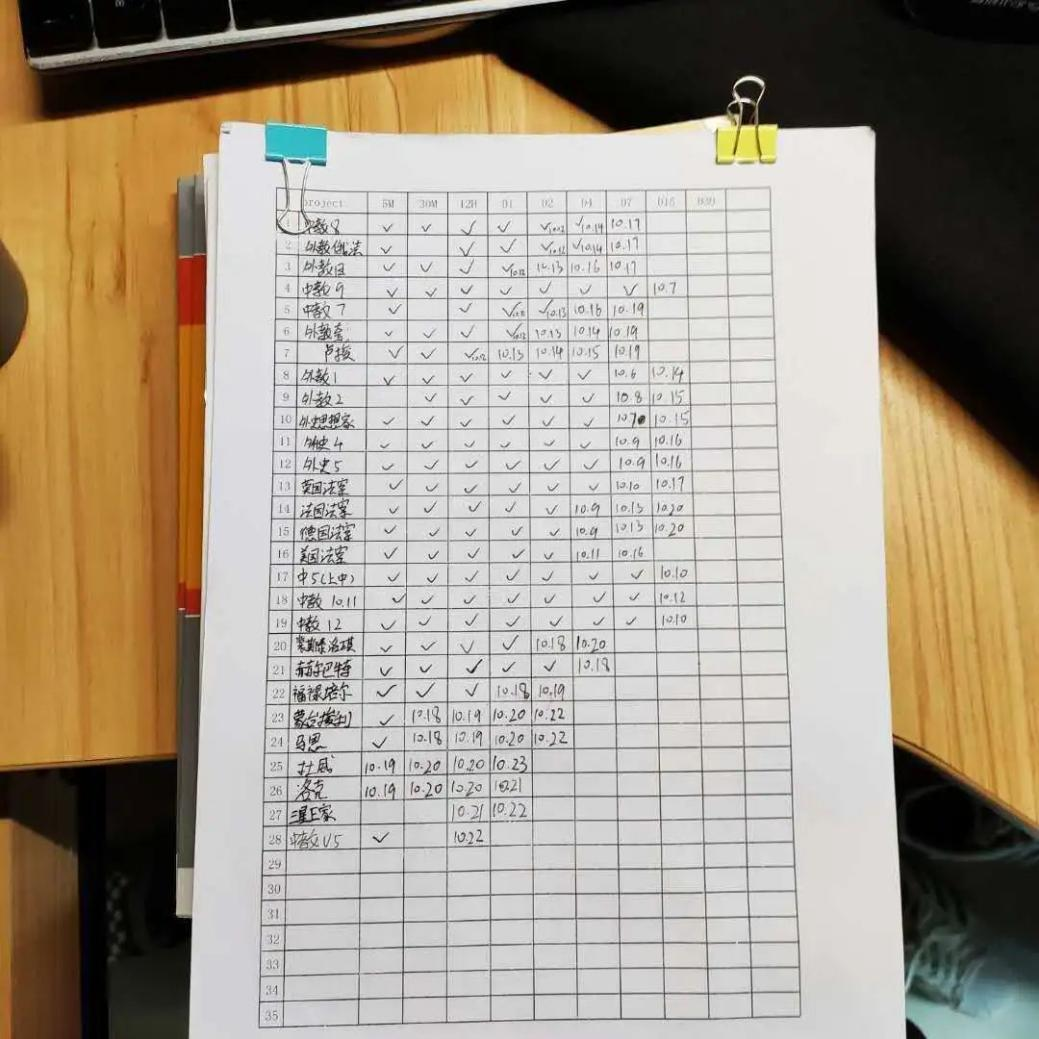 project 5M 30M 12H D1 D2 D4 D7 D15 D30
1 中教8 ✓ ✓ ✓ ✓ ✓10.12 ✓10.14 10.17
2 外教俄法 ✓ ✓ ✓ ✓10.12 ✓10.14 10.17
3 外教日 ✓ ✓ ✓ ✓10.12 10.13 10.16 10.17
4 中教9 ✓ ✓ ✓ ✓ ✓ ✓ ✓ 10.7
5 中教7 ✓ ✓ ✓ ✓10.13 10.16 10.19
6 外教 ✓ ✓ ✓ ✓10.12 10.13 10.14 10.19
7 卢梭 ✓ ✓ ✓10.12 10.13 10.14 10.15 10.19
8 外教1 ✓ ✓ ✓ ✓ ✓ ✓ 10.6 10.14
9 外教2 ✓ ✓ ✓ ✓ ✓ 10.8 10.15
10 外史思想家 ✓ ✓ ✓ ✓ ✓ ✓ 10.7 10.15
11 外史4 ✓ ✓ ✓ ✓ ✓ ✓ 10.9 10.16
12 外史5 ✓ ✓ ✓ ✓ ✓ ✓ 10.9 10.16
13 英国法案 ✓ ✓ ✓ ✓ ✓ ✓ 10.10 10.17
14 法国法案 ✓ ✓ ✓ ✓ ✓ 10.9 10.13 10.20
15 德国法案 ✓ ✓ ✓ ✓ ✓ 10.9 10.13 10.20
16 美国法案 ✓ ✓ ✓ ✓ ✓ 10.11 10.16
17 中5(上中) ✓ ✓ ✓ ✓ ✓ ✓ ✓ 10.10
18 中教10.11 ✓ ✓ ✓ ✓ ✓ ✓ ✓ 10.12
19 中教12 ✓ ✓ ✓ ✓ ✓ ✓ ✓ 10.10
20 裴斯泰洛齐 ✓ ✓ ✓ ✓ 10.18 10.20
21 赫尔巴特 ✓ ✓ ✓ ✓ ✓ 10.18
22 福禄培尔 ✓ ✓ ✓ 10.18 10.19
23 蒙台梭利 ✓ 10.18 10.19 10.20 10.22
24 马恩 ✓ 10.18 10.19 10.20 10.22
25 杜威 10.19 10.20 10.20 10.23
26 洛克 10.19 10.20 10.20 10.21
27 10.21 10.22
28 中教V5 ✓ 10.22
29
30
31
32
33
34
35